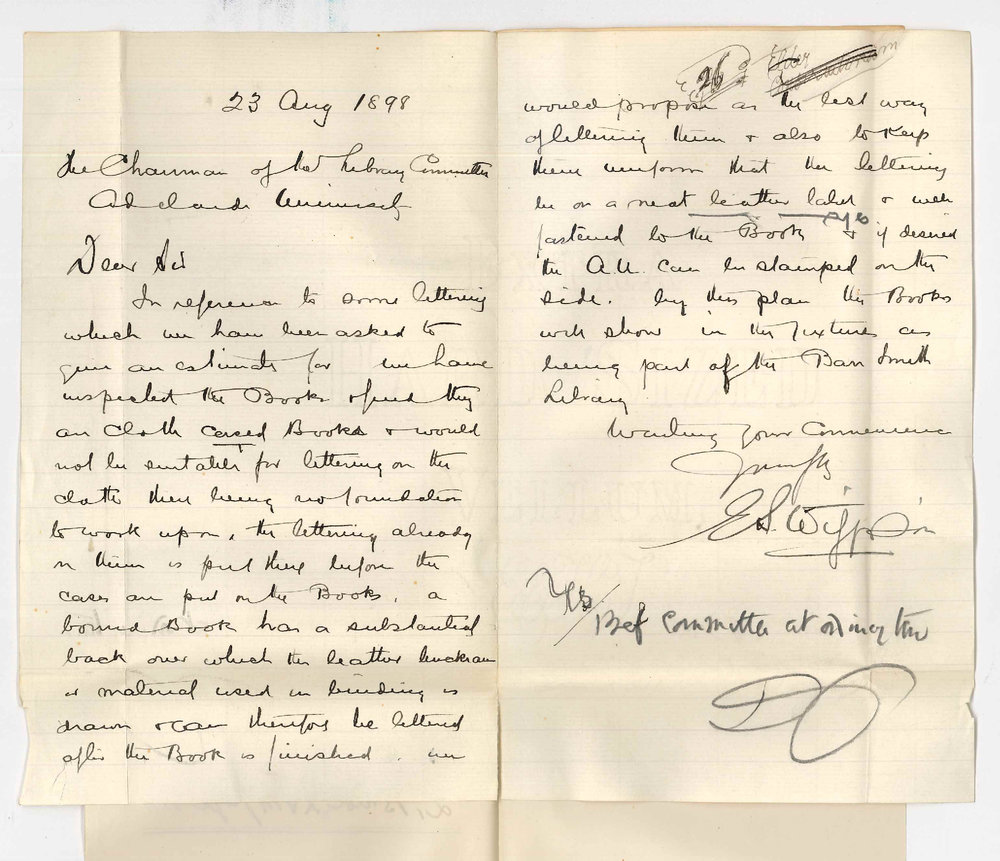 23 Aug 1898
The Chairman of the Library Committee
Adelaide University
Dear Sir
In reference to some lettering
which we have been asked to
give an estimate for we have
inspected the Books & find they
are cloth cased Books & would
not be suitable for lettering on the
cloth there being no foundation
to work upon, the lettering already
on them is put there before the
cases are put on the Books, a
bound Book has a substantial
back over which the leather buckram
or material used in binding is
drawn & can therefore be lettered
after the Book is finished. we
26
would propose as the best way
of lettering them & also to keep
them uniform that the lettering
be on a neat leather label & well
fastened to the Book & if desired
the A.U. can be stamped on the
side. by this plan the Books
will show in the fixtures as
being part of the Barr Smith
Library
Waiting your Convenience
Yours fly
E S Wigg & Son
Yes
Bef Committee at